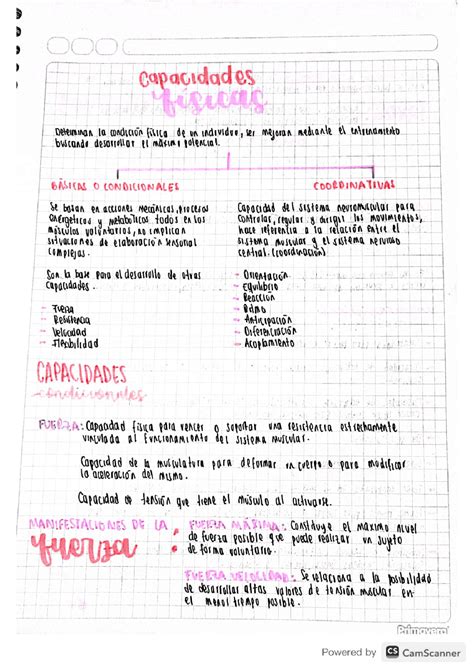 Capacidades
físicas
Determinan la condición física de un individuo, se mejoran mediante el entrenamiento
buscando desarrollar el máximo potencial.
BÁSICAS O CONDICIONALES
COORDINATIVAS
Se basan en acciones mecánicas, procesos
energéticos y metabólicos todos en los
músculos voluntarios, no implican
situaciones de elaboración sensorial
complejas.
Son la base para el desarrollo de otras
capacidades.
- Fuerza
- Resistencia
- Velocidad
- Flexibilidad
Capacidad del sistema neuromuscular para
controlar, regular y dirigir los movimientos,
hace referencia a la relación entre el
sistema muscular y el sistema nervioso
central. (coordinación)
- Orientación
- Equilibrio
- Reacción
- Ritmo
- Anticipación
- Diferenciación
- Acoplamiento
CAPACIDADES
condicionales
FUERZA: Capacidad física para vencer o soportar una resistencia estrechamente
vinculada al funcionamiento del sistema muscular.
Capacidad de la musculatura para deformar un cuerpo o para modificar
la aceleración del mismo.
Capacidad de tensión que tiene el músculo al activarse.
MANIFESTACIONES DE LA
fuerza
FUERZA MÁXIMA: Constituye el maximo nivel
de fuerza posible que puede realizar un sujeto
de forma voluntario.
FUERZA VELOCIDAD: Se relaciona a la posibilidad
de desarrollar altas valores de tensión muscular en
el menor tiempo posible.
Primavera!
Powered by CS CamScanner